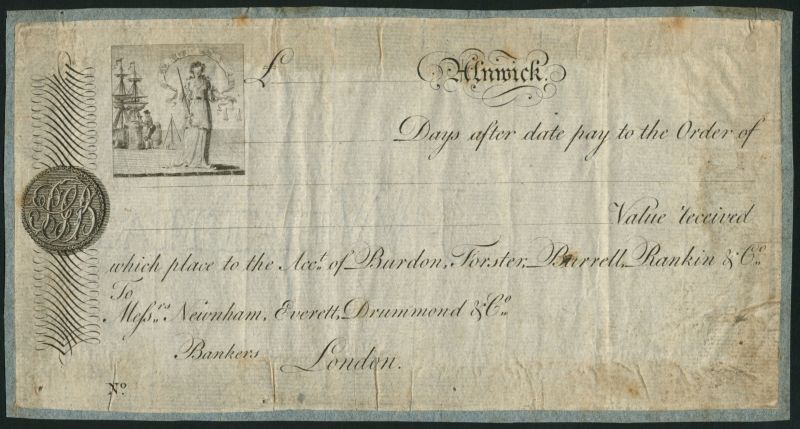 £ Alnwick.
Days after date pay to the Order of
Value received
which place to the Acct. of Burdon, Forster, Burrell, Rankin & Co.
To
Messrs. Newnham, Everett, Drummond & Co.
Bankers London.
No.